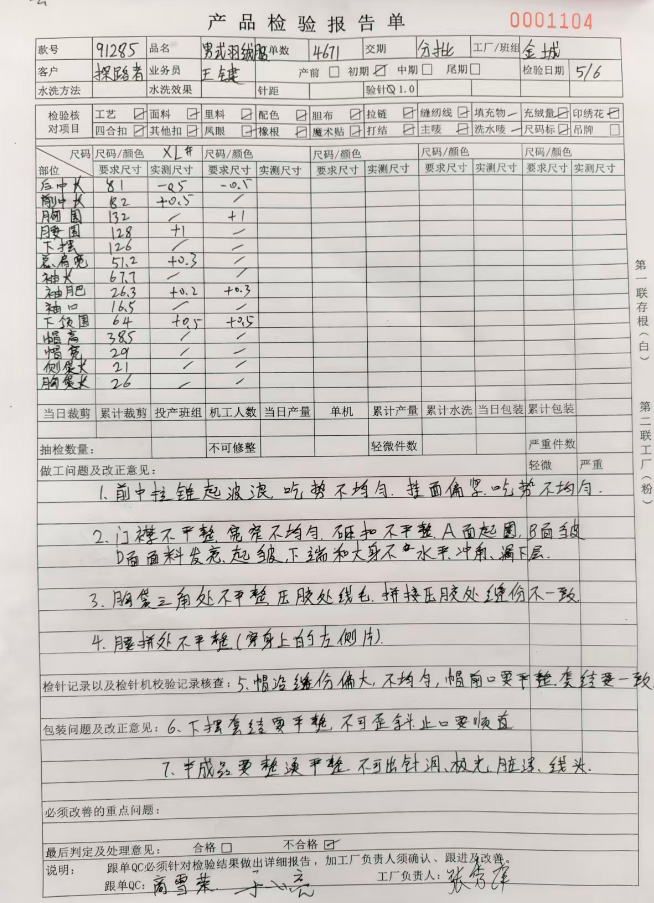 产品检验报告单 0001104
款号 91285 品名 男式羽绒服 订单数 4671 交期 分批 工厂/班组 金城
客户 探路者 业务员 王键 产前 初期 中期 尾期 检验日期 5/6
水洗方法 水洗效果 针距 验针 1.0
检验核对项目 工艺 面料 里料 配色 胆布 拉链 缝纫线 填充物 充绒量 印绣花
四合扣 其他扣 凤眼 橡根 魔术贴 打结 主唛 洗水唛 尺码标 吊牌
尺码 尺码/颜色 XL# 尺码/颜色 尺码/颜色 尺码/颜色 尺码/颜色
部位 要求尺寸 实测尺寸 要求尺寸 实测尺寸 要求尺寸 实测尺寸 要求尺寸 实测尺寸 要求尺寸 实测尺寸
后中长 81 -0.5 -0.5
前中长 82 +0.5 /
胸围 132 / +1
腰围 128 +1 /
下摆 126 / /
总肩宽 51.2 +0.3 /
袖长 67.7 / /
袖肥 26.3 +0.2 +0.3
袖口 16.5 / /
下领围 64 +0.5 +0.5
帽高 38.5 / /
帽宽 29 / /
侧袋长 21 / /
胸袋长 26 / /
当日裁剪 累计裁剪 投产班组 机工人数 当日产量 单机 累计产量 累计水洗 当日包装 累计包装
抽检数量: 不可修整 轻微件数 严重件数
做工问题及改正意见: 轻微 严重
1. 前中拉链起波浪, 吃势不均匀. 挂面偏紧, 吃势不均匀.
2. 门襟不平整, 宽窄不均匀. 砸扣不平整, A面起圆, B面皱
D面面料发亮, 起皱, 下端和大身不水平, 冲角、漏下层.
3. 胸袋三角处不平整, 压胶处线毛, 拼接压胶处缝份不一致
4. 腰拼处不平整(穿身上的左侧片).
检针记录以及检针机校验记录核查: 5. 帽沿缝份偏大, 不均匀, 帽前口要平整. 套结要一致
包装问题及改正意见: 6. 下摆套结要平整, 不可歪斜, 止口要顺直
7. 半成品要整烫平整, 不可出针洞、极光、脏渍、线头.
必须改善的重点问题:
最后判定及处理意见: 合格 不合格
说明: 跟单QC必须针对检验结果做出详细报告,加工厂负责人须确认、跟进及改善。
跟单QC: 商雪荣 工厂负责人:
第一联存根(白)
第二联工厂(粉)